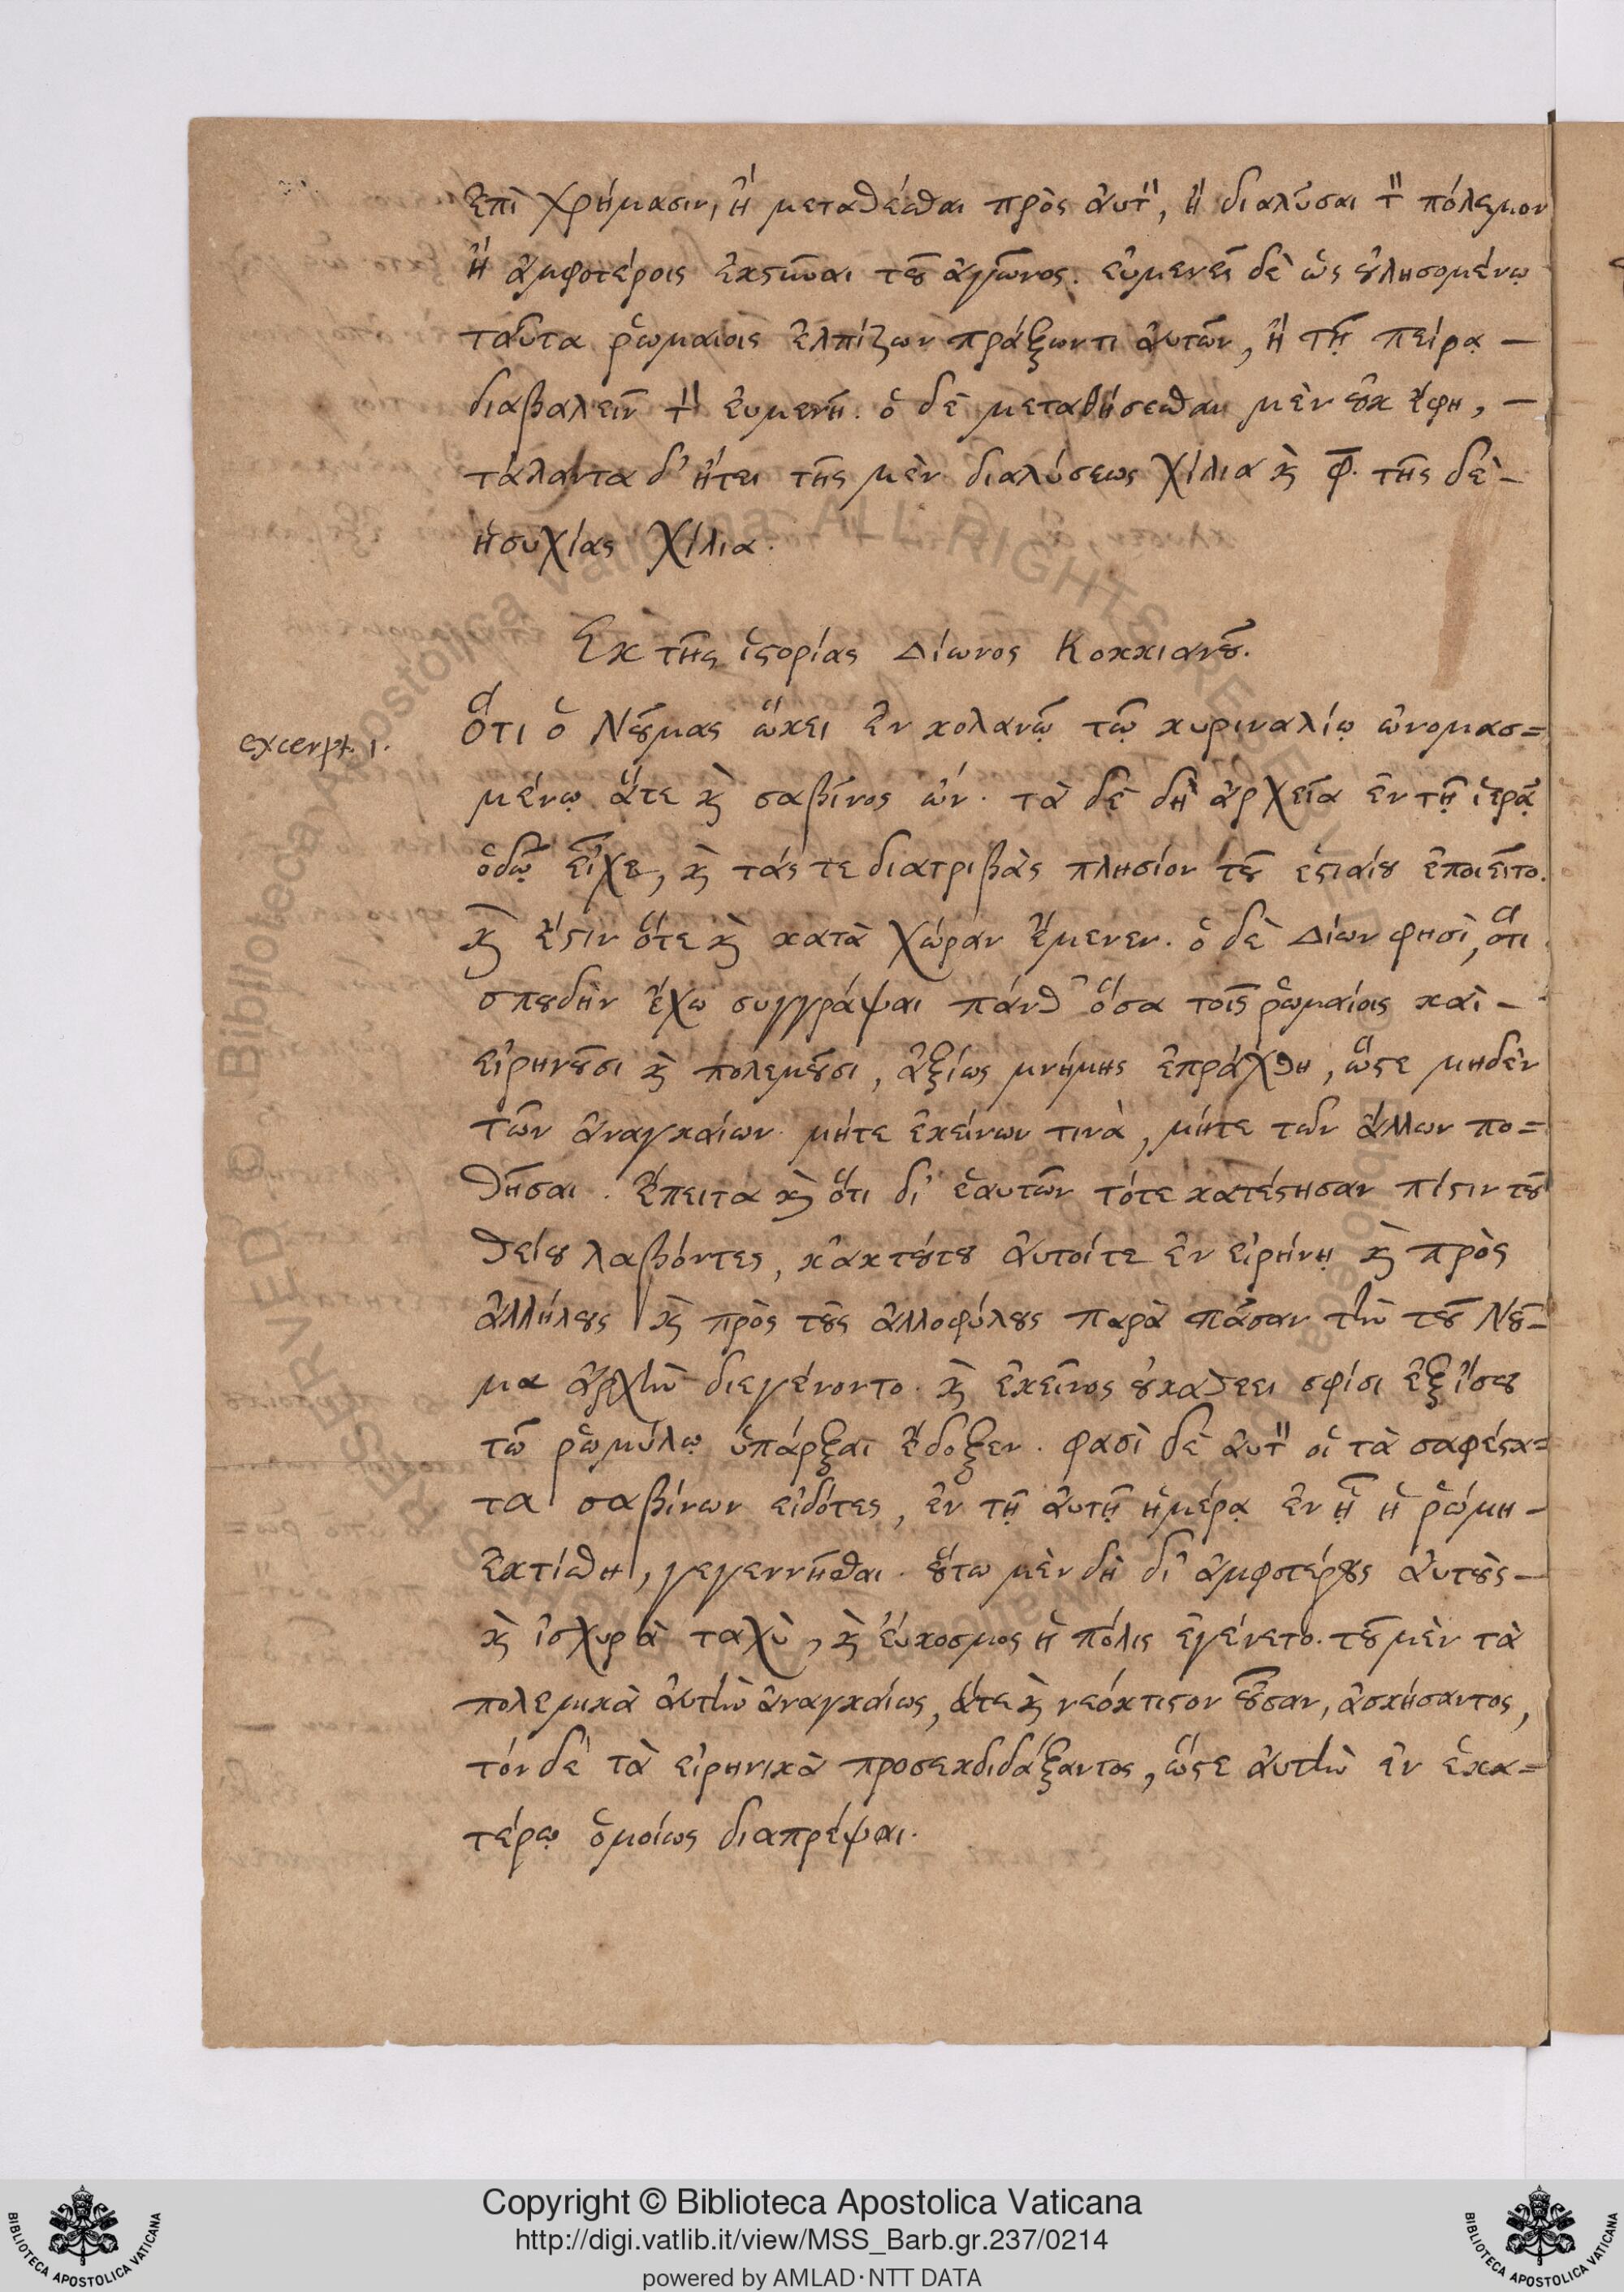 ἐπὶ χρήμασιν, ἢ μεταθέσθαι πρὸς αὐτ", ἢ διαλῦσαι τ" πόλεμον
ἢ ἀμφοτέροις ἐκστῆναι τοῦ ἀγῶνος. εὐμενεῖ δὲ ὡς οὐλησομένῳ
ταῦτα ῥωμαίοις ἐλπίζων πράξωντι αὐτῶν, ἢ τῇ πείρᾳ –
διαβαλεῖν τ" εὐμενῆ. ὁ δὲ μεταθήσεσθαι μὲν οὐκ ἔφη, –
τάλαντα δ' ᾔτει τῆς μὲν διαλύσεως χίλια κ̀ φ̅. τῆς δὲ –
ἡσυχίας χίλια.
Ἐκ τῆς ἱστορίας Δίωνος Κοκκιανοῦ.
excerpt. 1.
Ὅτι ὁ Νουμᾶς ᾤκει ἐν κολανῷ τῷ κυριναλίῳ ὠνομασ=
μένῳ ἅτε κ̀ σαβῖνος ὤν. τὰ δὲ δὴ ἀρχεῖα ἐν τῇ ἱερᾷ
ὁδῷ εἶχε, κ̀ τάς τε διατριβὰς πλησίον τοῦ ἑστιαίου ἐποιεῖτο.
κ̀ ἔστιν ὅτε κ̀ κατὰ χώραν ἔμενεν. ὁ δὲ Δίων φησὶ, ὅτι
σπουδὴν ἔχω συγγράψαι πάνθ' ὅσα τοῖς ῥωμαίοις καὶ –
εἰρηνοῦσι κ̀ πολεμοῦσι, ἀξίως μνήμης ἐπράχθη, ὥστε μηδὲν
τῶν ἀναγκαίων μήτε ἐκείνων τινὰ, μήτε τῶν ἄλλων πο=
θῆσαι. ἔπειτα κ̀ ὅτι δι' ἑαυτῶν τότε κατέστησαν πίστιν τοῦ
θείου λαβόντες, κἀκτούτου αὐτοίτε ἐν εἰρήνῃ κ̀ πρὸς
ἀλλήλους κ̀ πρὸς τοὺς ἀλλοφύλους παρὰ πᾶσαν τὴν τοῦ Νου=
μα ἀρχὴν διεγένοντο. κ̀ ἐκεῖνος οὐκαθεει σφίσι ἐξίσου
τῷ ῥωμύλῳ ὑπάρξαι ἔδοξεν. φασὶ δὲ αὐτ" οἱ τὰ σαφέστα=
τα σαβίνων εἰδότες, ἐν τῇ αὐτῇ ἡμέρᾳ ἐν ᾗ ἡ ῥώμη –
ἐκτίσθη, γεγεννῆσθαι. οὕτω μὲν δὴ δι' ἀμφοτέρους αὐτοὺς –
κ̀ ἰσχυρὰ ταχὺ, κ̀ εὔκοσμος ἡ πόλις ἐγένετο. τοῦ μὲν τὰ
πολεμικὰ αὐτὴν ἀναγκαίως, ἅτε κ̀ νεόκτιστον οὖσαν, ἀσκήσαντος,
τόν δὲ τὰ εἰρηνικὰ προσεκδιδάξαντος, ὥστε αὐτὴν ἐν ἑκα=
τέρῳ ὁμοίως διαπρέψαι.
Copyright © Biblioteca Apostolica Vaticana
http://digi.vatlib.it/view/MSS_Barb.gr.237/0214
powered by AMLAD·NTT DATA